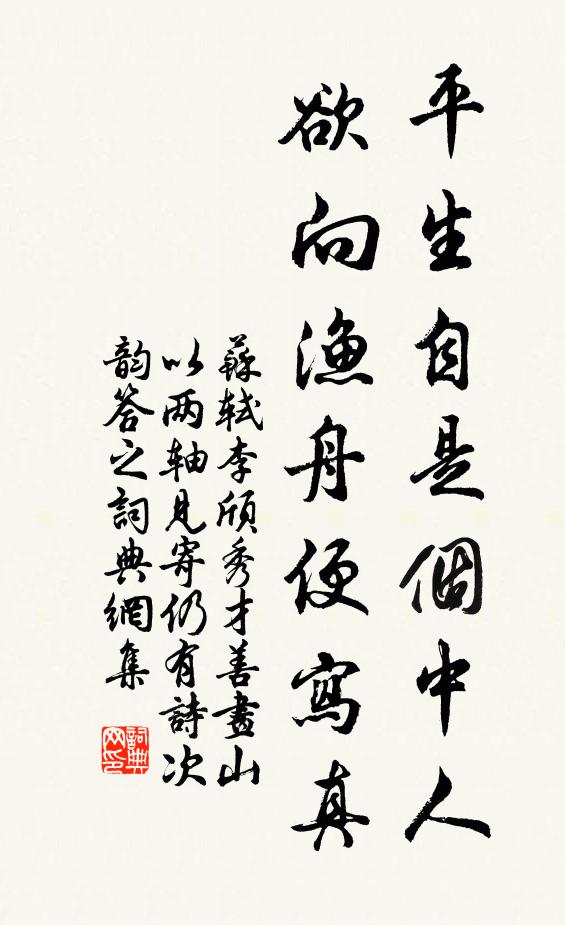 平生自是個中人
欲向漁舟便寫真
蘇軾李頎秀才善畫山
以两軸見寄仍有詩次
韵答之詞典網集
詞典网印